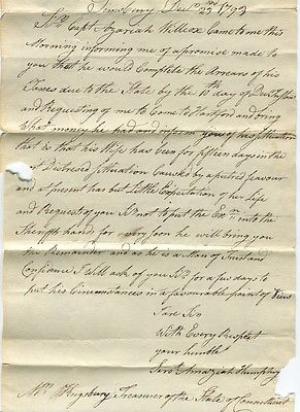 Simsbury Decr 23d 1793
Sir Capt Azariah Willcox Came to me this
Morning informing me of a promise made to
you that he would Complete the Arrears of his
Taxes due to the State by the 10th day of
and Requesting of me to Come to Hartford and bring
What money he had and inform you of his Situation
that is that his Wife has been for fifteen days in the
Distressed Situation by a putred favour
and at present has but Little Expectation of her Life
and Requests of you Sr not to put the Exn into the
Sheriffs hands for very soon he will bring you
the Remainder and as he is a Man of
Confiance I will ask of you Sr for a few days to
put his Circumstances in a favourable point of View
I are Sir
With Every Respect
your humble
Servt Amaziah Humphry
Mr Kingsbury Treasurer of the State of Connecticut